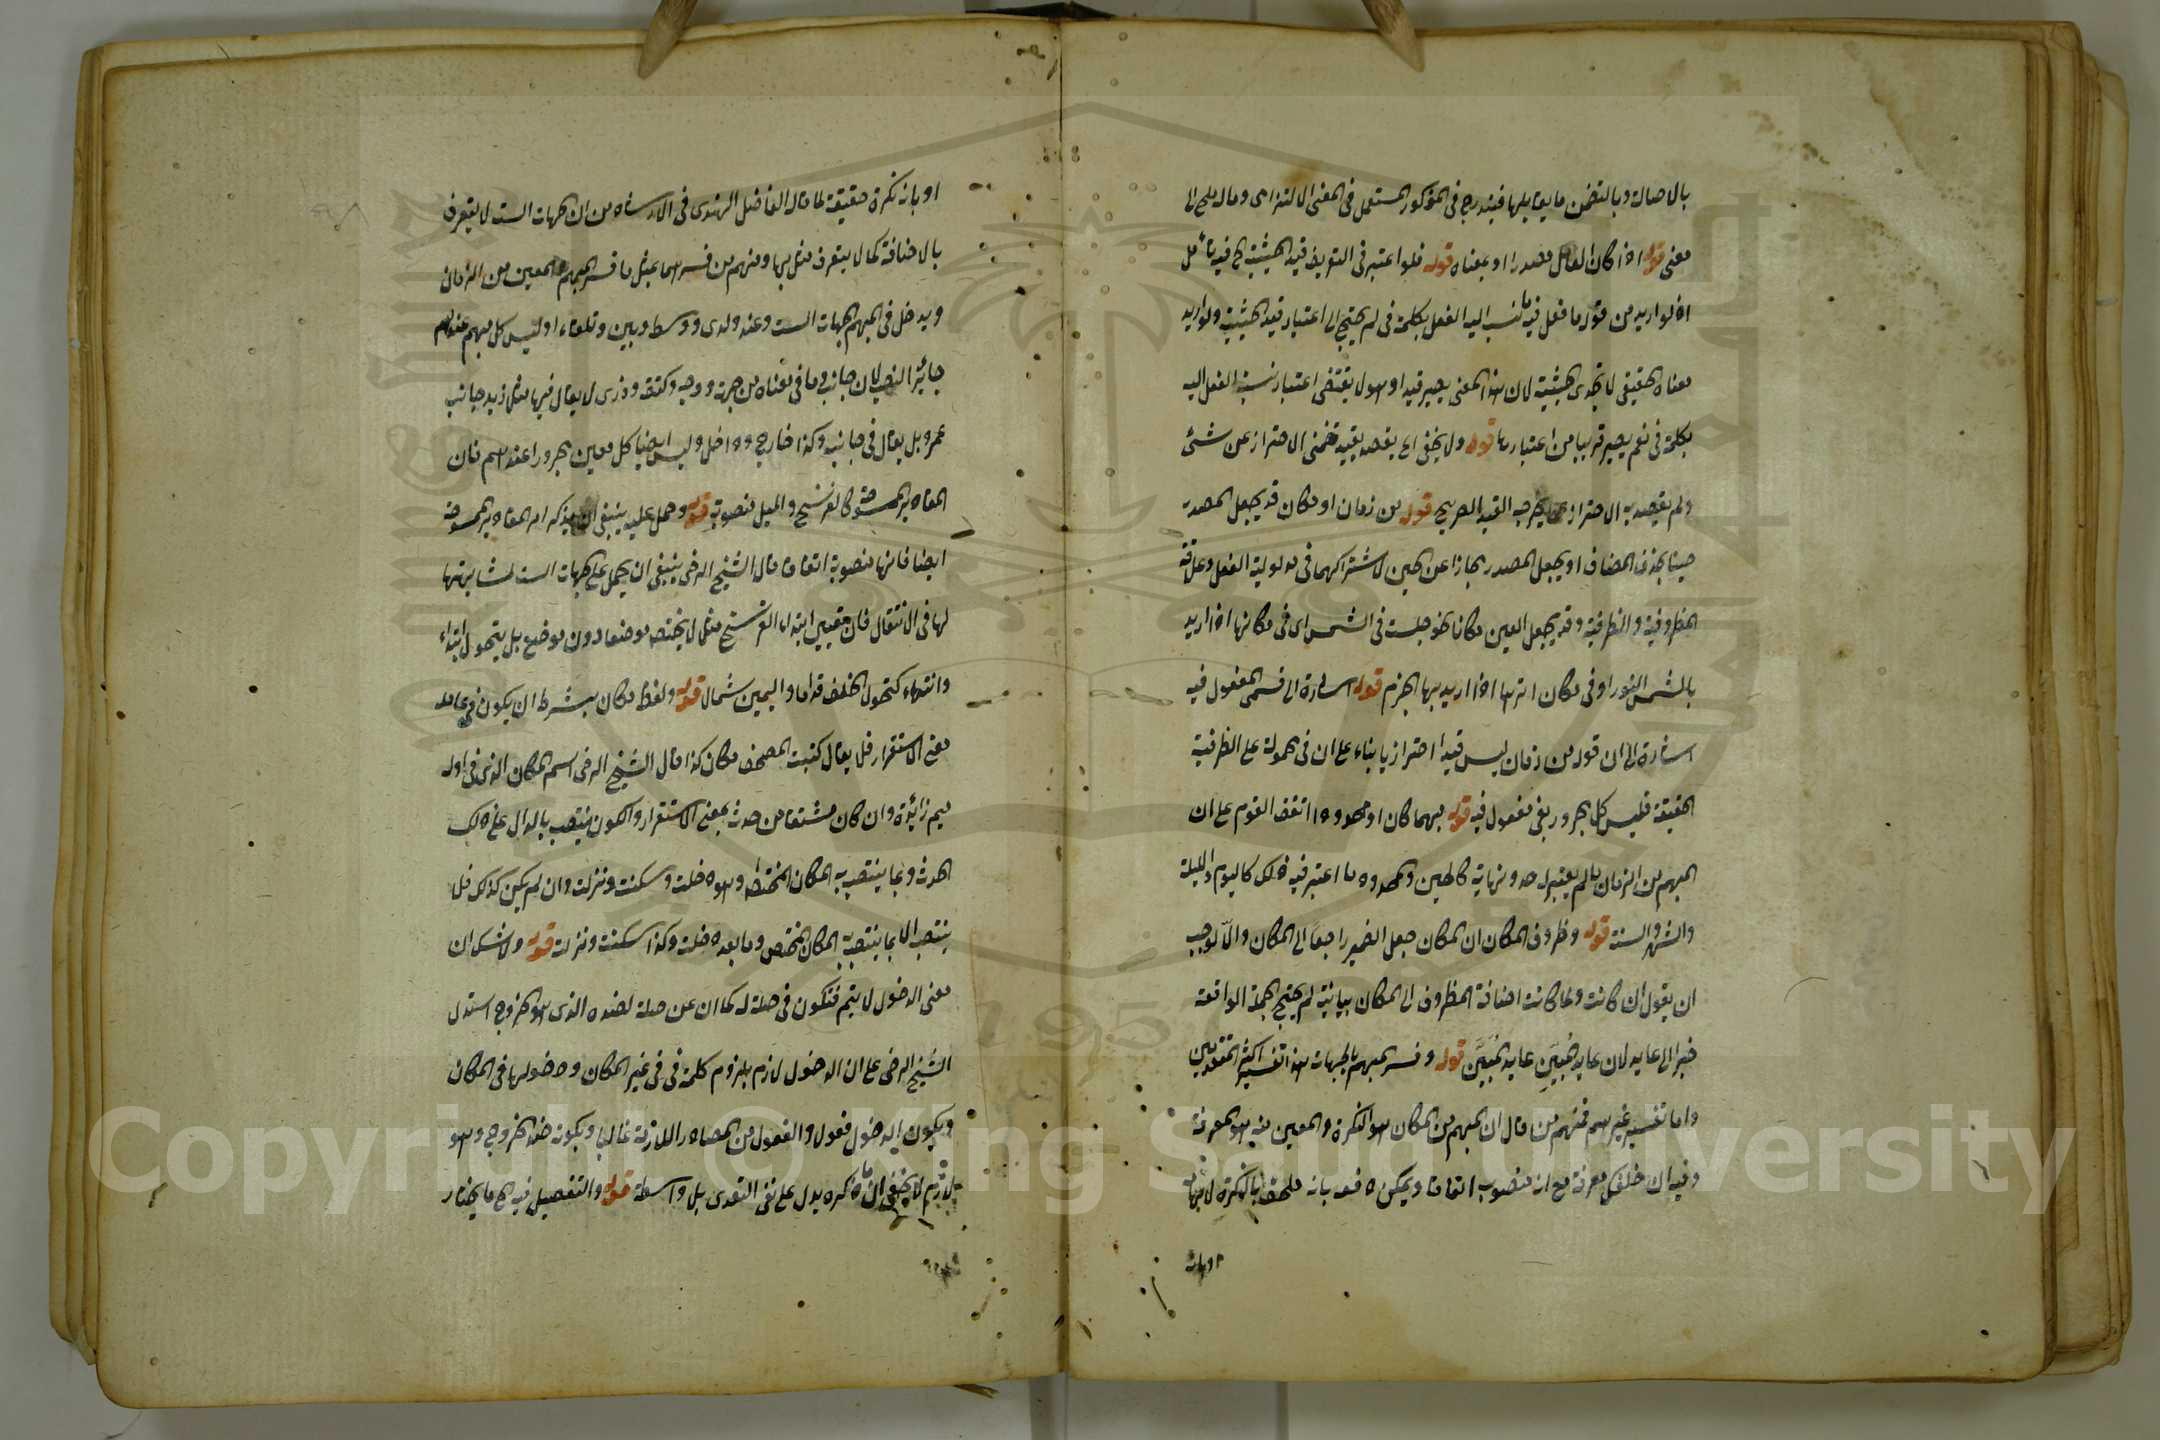 بالاصالة وبالتضمن ما يقابلها فيندرج في المذكور المستعمل في المعنى الالتزامي وماله يلمح الى
معنى قوله اذا كان العامل مصدرا او بمعناه قوله فلو اعتبر في التعريف قيد الحيثية الخ فيه تأمل
اذ لو اريد من قوله ما فعل فيه ما نسب اليه الفعل بكلمة في لم يحتج الى اعتبار قيد الحيثية ولو اريد
معناه الحقيقي لا تجدى الحيثية لان هذا المعنى يصير قيدا وهو لا يقتضى اعتبار نسبة الفعل اليه
بكلمة في نعم يصير قريبا من اعتبارها قوله ولا يخفى اى يقصد بقيد ضمني الاحتراز عن شئ
ولم يقصد به الاحتراز عما يخرجه القيد الصريح قوله من زمان او مكان قد يجعل المصدر
حينا بحذف المضاف او يجعل المصدر مجازا عن الحين لاشتراكهما في مدلولية الفعل وعلاقة
المظروفية والظرفية وقد يجعل العين مكانا نحو جلست في الشمس اى في مكانها اذا اريد
بالشمس النور او في مكان اثرها اذا اريد بها الجرم قوله اشارة الى قسمي المفعول فيه
اشارة الى ان قوله من زمان ليس قيدا احترازيا بناء على ان في محمولة على الظرفية
الحقيقة فليس كل مجرور بفى مفعول فيه قوله مبهما كان او محدودا اتفق القوم على ان
المبهم من الزمان ما لم يعتبر له حد ونهاية كالحين والمحدود ما اعتبر فيه ذلك كاليوم والليلة
والشهر والسنة قوله وظروف المكان ان المكان جعل الضمير راجعا الى المكان والا لوجب
ان يقول ان كانت ولما كانت اضافة الظروف الى المكان بيانية لم يحتج الجملة الواقعة
خبرا الى عايد لان عايد المبين عايد المبين قوله وفسر المبهم بالجهات هذا تفسير اكثر المتقدمين
واما تفسير غيرهم فمنهم من قال ان المبهم من المكان هو النكرة والمعين منه هو المعرفة
وفيه ان خلفك معرفة مع انه منصوب اتفاقا ويمكن دفعه بانه ملحق بالنكرة
او بانه
او بانه نكرة حقيقة لما قال الفاضل الهندى في الارشاد من ان الجهات الست لا يتعرف
بالاضافة كما لا يتعرف مثل بها ومنهم من فسرهما بمثل ما فسر المبهم والمعين من الزمان
ويدخل في المبهم الجهات الست وعند ولدى ووسط وبين وتلقاء او ليس كل مبهم عندهم
جائز النصب لان جانب وما في معناه من جهة ووجه وكنف وذرى لا يقال فيها مثل زيد جانب
عمرو بل يقال في جانبه وكذا خارج وداخل وليس ايضا كل معين مجرورا عندهم فان
المقادير الممسوحة كالفرسخ والميل منصوبة قوله وحمل عليه ينبغى ان يذكر المقادير الممسوحة
ايضا فانها منصوبة اتفاقا قال الشيخ الرضى ينبغى ان يحمل على الجهات الست لمشابهتها
لها في الانتقال فان تعيين ابتداء الفرسخ مثلا لا يختص موضعا دون موضع بل يتحول ابتداء
وانتهاء كتحول الخلف قداما واليمين شمالا قوله ولفظ مكان بشرط ان يكون في عامله
معنى الاستقرار فلا يقال كتبت المصحف مكان كذا قال الشيخ الرضى اسم المكان الذى في اوله
ميم زائدة وان كان مشتقا من حدث بمعنى الاستقرار والكون ينتصب بالدال على ذلك
الحدث وبما ينتصب به المكان المختص وهو دخلت وسكنت ونزلت وان لم يكن كذلك فلا
ينتصب الا بما ينتصب به المكان المختص وما بعد دخلت وكذا سكنت ونزلت قوله ولا شك ان
معنى الدخول لا يتم فتكون في صلة له كما ان عن صلة لضده الذى هو الخروج استدل
الشيخ الرضى على ان الدخول لازم بلزوم كلمة في في غير المكان ودخولها في المكان
ويكون الدخول فعول والفعول من المصادر اللازمة غالبا وبكونه ضد الخروج وهو
لازم لا يخفى ان ما ذكره يدل على نفى التعدى بلا واسطة قوله والتفصيل فيه الخ ما يختار